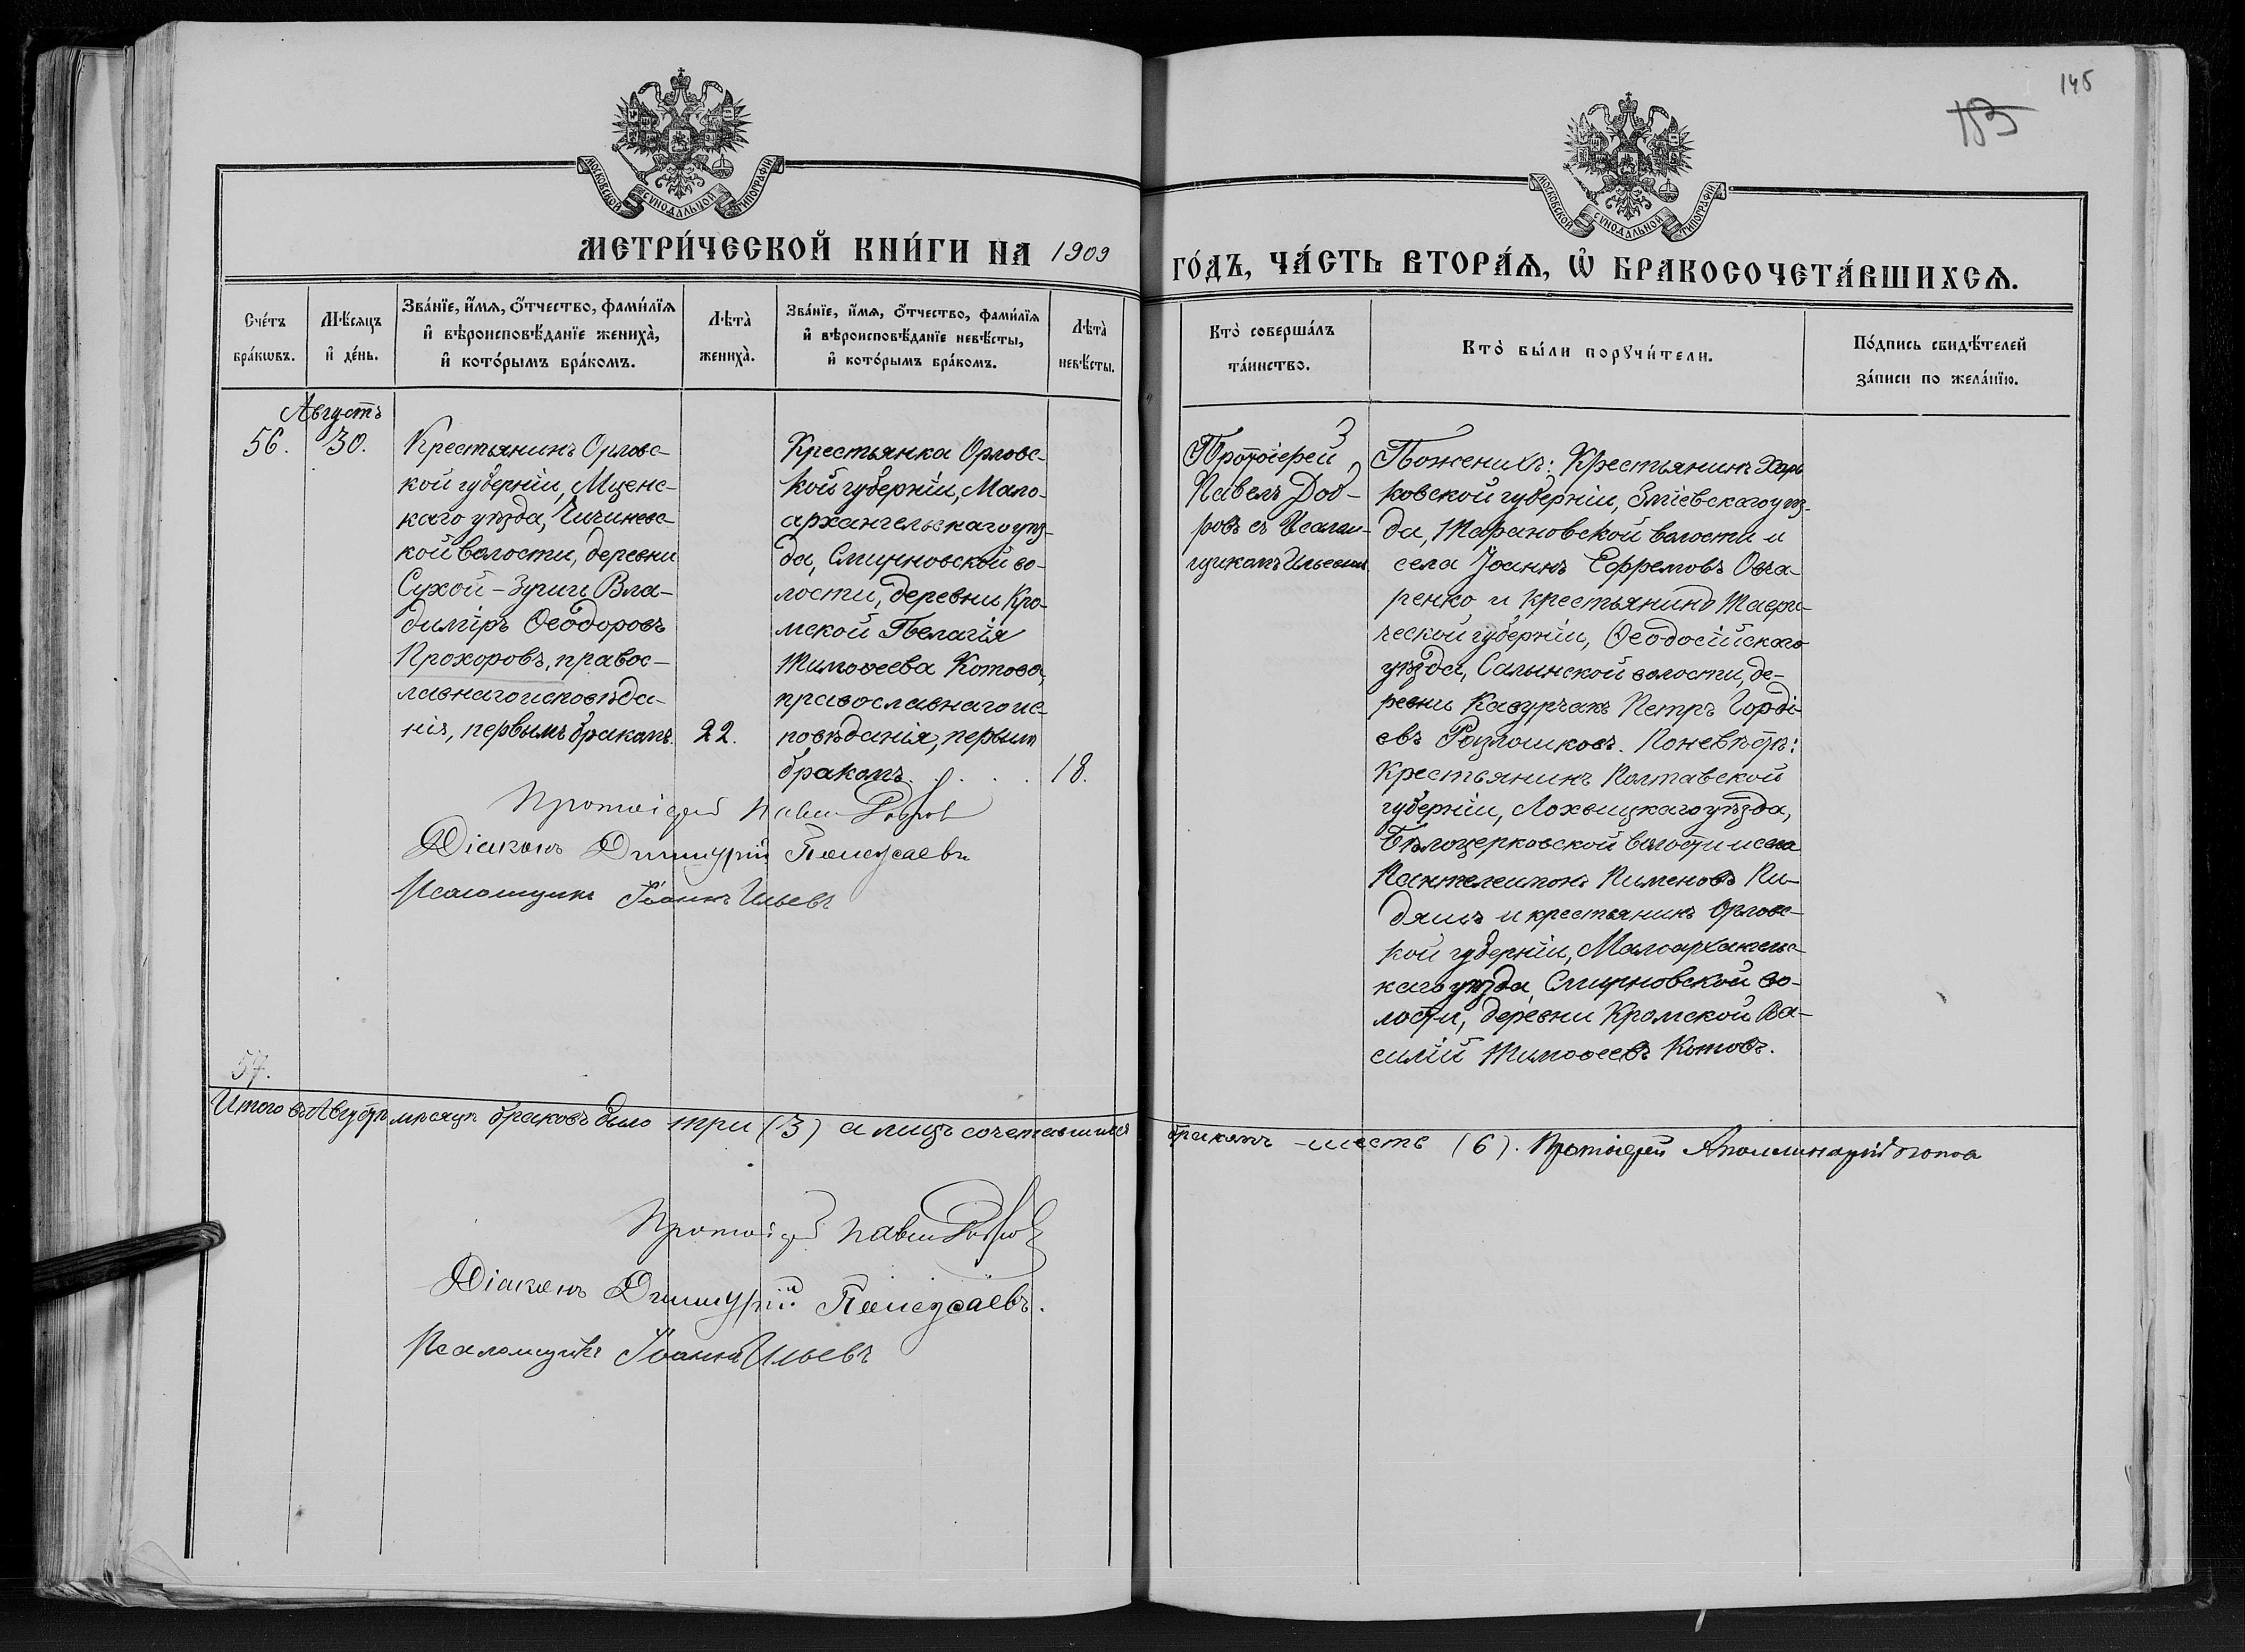 145
153
МОСКОВСКОЙ СѴНОДАЛЬНОЙ ТИПОГРАФІИ
МОСКОВСКОЙ СѴНОДАЛЬНОЙ ТИПОГРАФІИ
МЕТРИ́ЧЕСКОЙ КНИ́ГИ НА 1909
ГО́ДЪ, ЧА́СТЬ ВТОРА́Ѧ, Ѡ҆ БРАКОСОЧЕТА́ВШИХСѦ.
Сче́тъ
бра́кѡвъ.
Мѣ́сяцъ
и҆ де́нь.
Зва́нїе, и҆́мѧ, ѻ҆́тчество, фами́лїѧ
и҆ вѣроисповѣ́данїе жениха̀,
и҆ кото́рымъ бра́комъ.
Лѣта̀
жениха̀.
Зва́нїе, и҆́мѧ, ѻ҆́тчество, фами́лїѧ
и҆ вѣроисповѣ́данїе невѣ́сты,
и҆ кото́рымъ бра́комъ.
Лѣта̀
невѣ́сты.
Кто̀ соверша́лъ
та́инство.
Кто̀ бы́ли порꙋчи́тели.
По́дпись свидѣ́телей
за́писи по жела́нїю.
Августъ
56.
30.
Крестьянинъ Орловс-
кой губерніи, Мценс-
каго уѣзда,
кой волости, деревни
Сухой-Зуши Вла-
диміръ Ѳеодоровъ
Прохоровъ, правос-
лавнаго исповѣда-
нія, первымъ бракомъ.
22.
Крестьянка Орловс-
кой губерніи, Мало-
архангельскаго уѣз-
да, Смирновской во-
лости, деревни Кро-
мской Пелагія
Тимоѳеева Котова,
православнаго ис-
повѣданія, первымъ
бракомъ. . . . .
18.
Протоіерей Павелъ Добровъ
Діаконъ Димитрій
Псаломщикъ Іоаннъ Ильевъ
3
Протоіерей
Павелъ Доб-
ровъ съ Псалом-
щикомъ Ильевымъ
По женихѣ: Крестьянинъ Харь
ковской губерніи, Зміевскаго уѣз-
да, Тарановской волости и
села Іоаннъ Ефремовъ Овча-
ренко и крестьянинъ Таври-
ческой губерніи, Ѳеодосійскаго
уѣзда, Салынской волости, де-
ревни Кавурчакъ Петръ Горді-
евъ. По невѣстѣ:
Крестьянинъ Полтавской
губерніи, Лохвицкаго уѣзда,
Бѣлоцерковской волости и села
Пантелеимонъ Пименовъ Пи-
дяшъ и крестьянинъ Орловс-
кой губерніи, Малоархангельс-
каго уѣзда, Смирновской во-
лости, деревни Кромской Ва-
силій Тимоѳеевъ Котовъ.
57.
Итого въ Августѣ мѣсяцѣ браковъ было три (3) а лицъ сочетавшихся
бракомъ - шесть (6). Протоіерей Аполлинарій Попов
Протоіерей Павелъ Добровъ
Діаконъ Димитрій
Псаломщикъ Іоаннъ Ильевъ